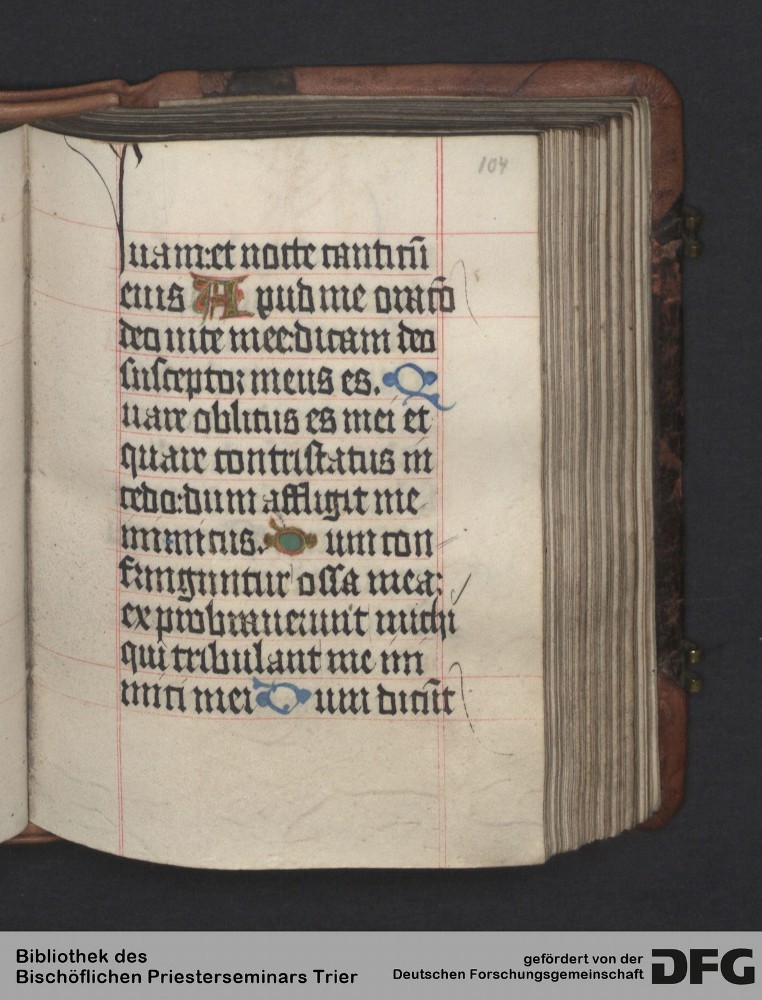 104
uam:et nocte canticū
eius Apud me oratō
deo uite mee:dicam deo
susceptor meus es. Q
uare oblitus es mei et
quare contristatus in
cedo:dum affligit me
inimicus. Dum con
fringuntur ossa mea:
exprobrauerunt michi
qui tribulant me ini
mici mei Dum dicūt
Bibliothek des
Bischöflichen Priesterseminars Trier
gefördert von der
Deutschen Forschungsgemeinschaft
DFG